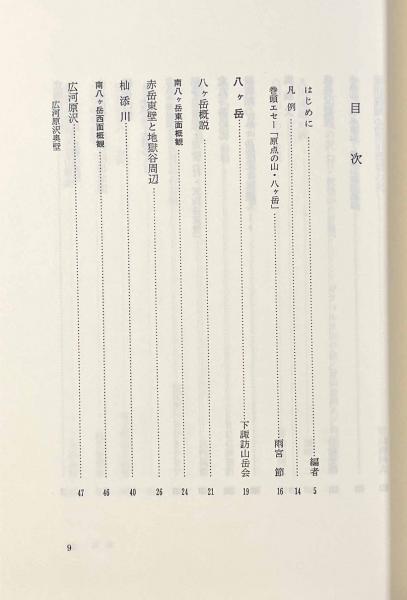 目次
はじめに……編者 5
凡例……14
巻頭エセー「原点の山・八ヶ岳」……雨宮 節 16
八ヶ岳……下諏訪山岳会 19
八ヶ岳概説……21
南八ヶ岳東面概観……24
赤岳東壁と地獄谷周辺……26
杣添川……40
南八ヶ岳西面概観……46
広河原沢……47
広河原沢奥壁
9